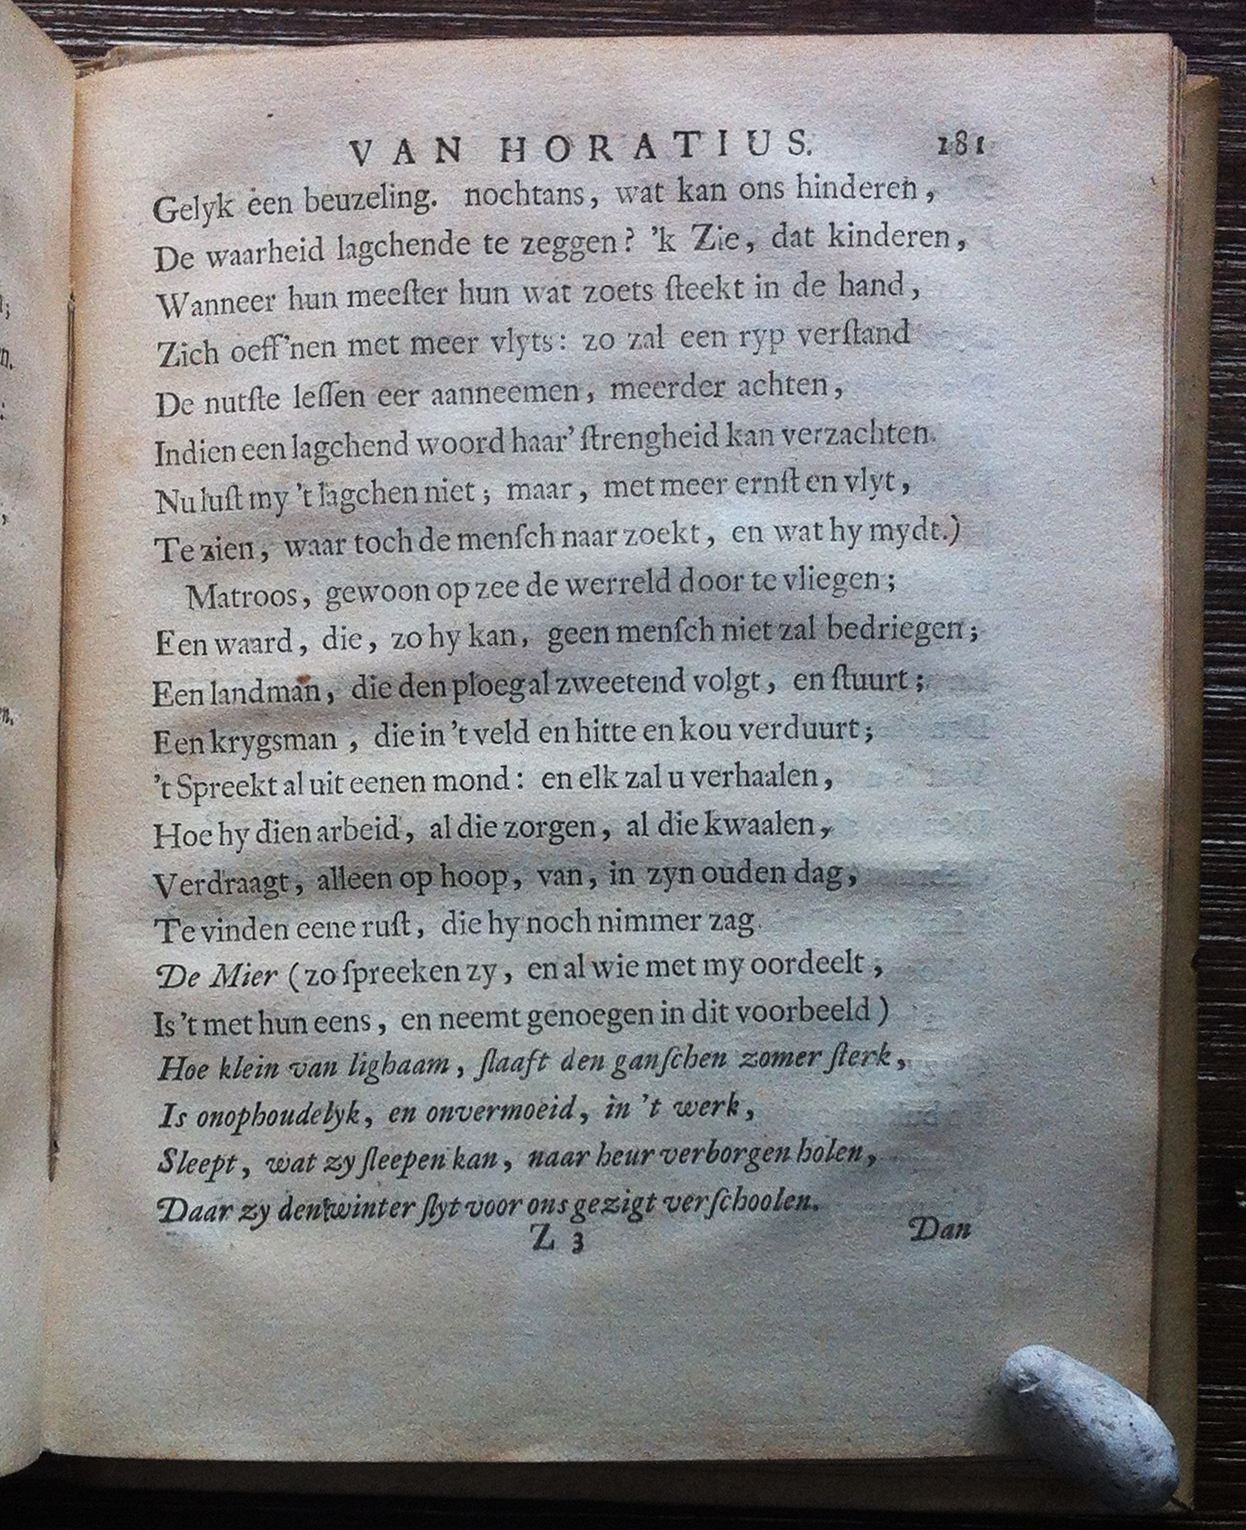 VAN HORATIUS. 181
Gelyk een beuzeling. nochtans, wat kan ons hinderen,
De waarheid lagchende te zeggen? 'k Zie, dat kinderen,
Wanneer hun meeſter hun wat zoets ſteekt in de hand,
Zich oeff'nen met meer vlyts: zo zal een ryp verſtand
De nutſte leſſen eer aanneemen, meerder achten,
Indien een lagchend woord haar' ſtrengheid kan verzachten.
Nu luſt my 't lagchen niet; maar, met meer ernſt en vlyt,
Te zien, waar toch de menſch naar zoekt, en wat hy mydt.)
Matroos, gewoon op zee de werreld door te vliegen;
Een waard, die, zo hy kan, geen menſch niet zal bedriegen;
Een landman, die den ploeg al zweetend volgt, en ſtuurt;
Een krygsman, die in 't veld en hitte en kou verduurt;
't Spreekt al uit eenen mond: en elk zal u verhaalen,
Hoe hy dien arbeid, al die zorgen, al die kwaalen,
Verdraagt, alleen op hoop, van, in zyn ouden dag,
Te vinden eene ruſt, die hy noch nimmer zag.
De Mier (zo ſpreeken zy, en al wie met my oordeelt,
Is 't met hun eens, en neemt genoegen in dit voorbeeld)
Hoe klein van lighaam, ſlaaft den ganſchen zomer ſterk,
Is onophoudelyk, en onvermoeid, in 't werk,
Sleept, wat zy ſleepen kan, naar heur verborgen holen,
Daar zy den winter ſlyt voor ons gezigt verſchoolen.
Z 3 Dan